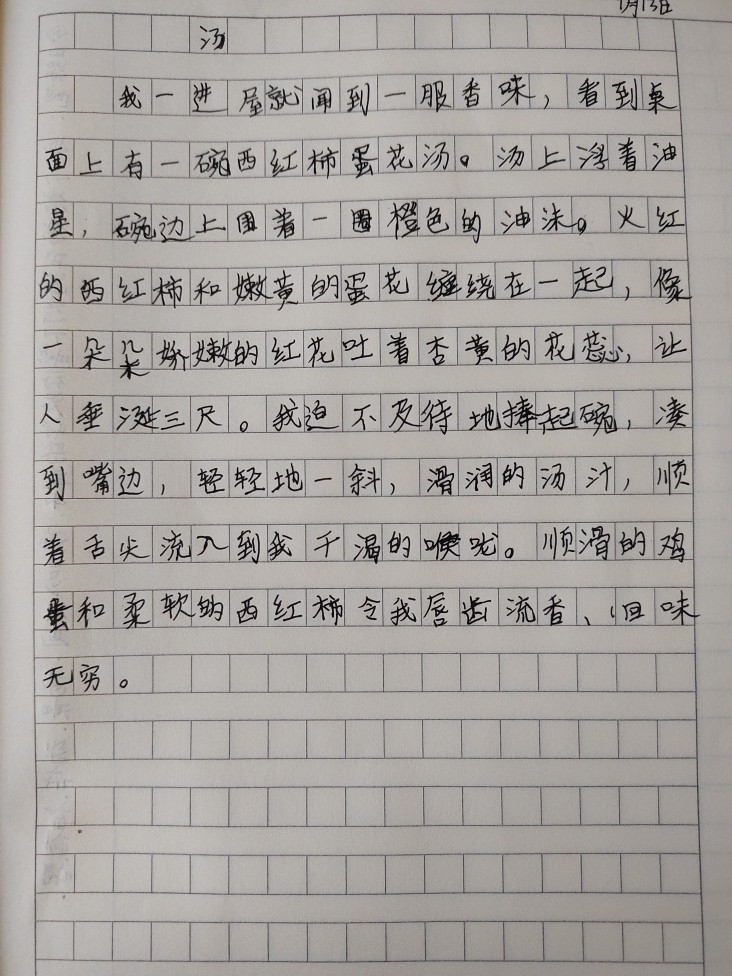 1月13日
汤
我一进屋就闻到一服香味，看到桌
面上有一碗西红柿蛋花汤。汤上浮着油
星，碗边上围着一圈橙色的油沫。火红
的西红柿和嫩黄的蛋花缠绕在一起，像
一朵朵娇嫩的红花吐着杏黄的花蕊，让
人垂涎三尺。我迫不及待地捧起碗，凑
到嘴边，轻轻地一斜，滑润的汤汁，顺
着舌尖流入到我干渴的喉咙。顺滑的鸡
蛋和柔软的西红柿令我唇齿流香、回味
无穷。